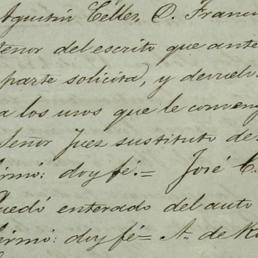 Agustín Tellez, O. Franci
tenor del escrito que ante
parte solicita, y devuelv
a los usos que le conveng
Señor Juez sustituto de
firmó: doy fé.= José C.
Quedó enterado del auto
firmó: doy fé= A. de R